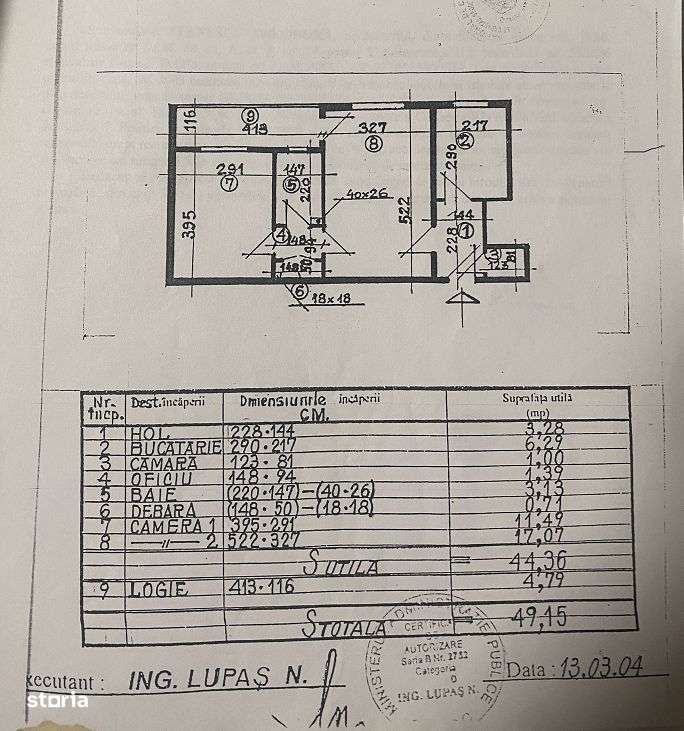 116
9
413
327
8
217
2
290
291
7
147
5
220
40x26
395
522
144
1
228
4
148
94
3
123
81
148
50
6
18x18
Nr. încp.
Dest. încăperii
Dimensiunile încăperii CM.
Suprafața utilă (mp)
1 HOL 228·144 3,28
2 BUCATARIE 290·217 6,29
3 CAMARA 123·81 1,00
4 OFICIU 148·94 1,39
5 BAIE (220·147)-(40·26) 3,13
6 DEBARA (148·50)-(18·18) 0,71
7 CAMERA 1 395·291 11,49
8 —"— 2 522·327 17,07
SUTILA = 44,36
9 LOGIE 413·116 4,79
STOTALA = 49,15
CERTIFICA
DE
AUTORIZARE
Seria B Nr. 2732
Categoria
0
ING. LUPAȘ N.
MINISTERUL ADMINISTRAȚIEI PUBLICE
xecutant : ING. LUPAȘ N.
Data : 13.03.04
storia